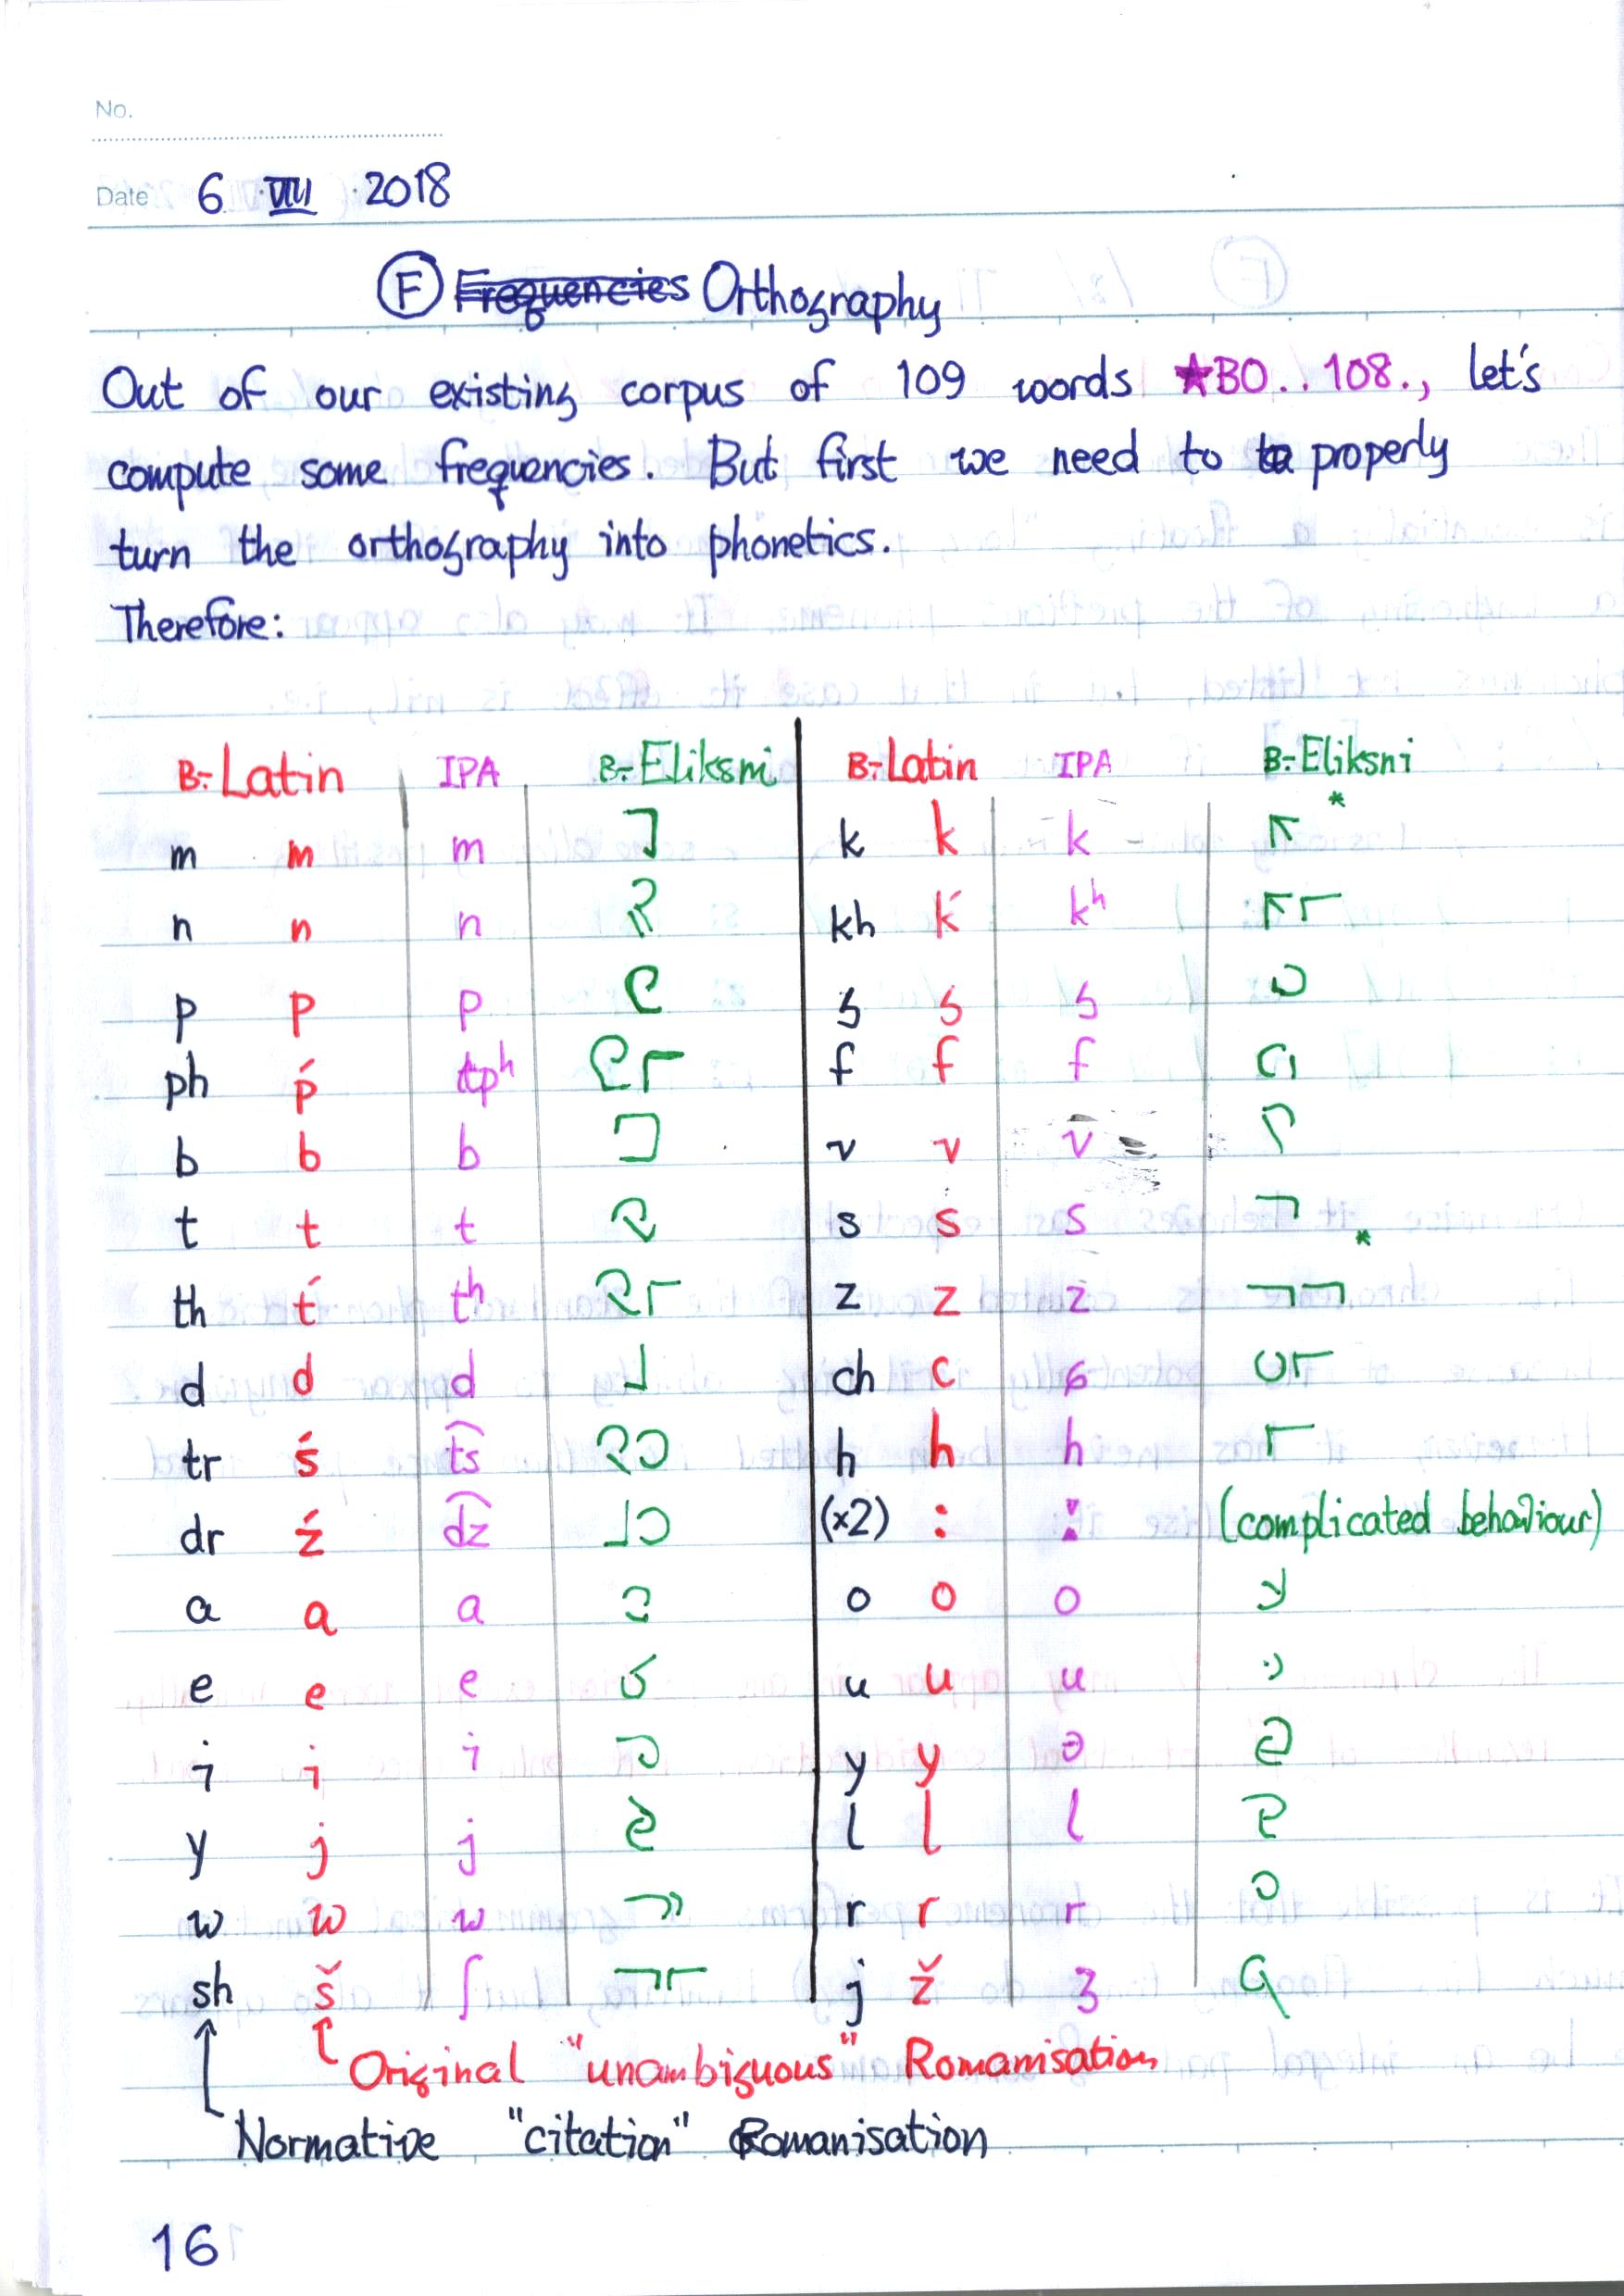 No.
Date 6 VIII 2018
F Frequencies Orthography
Out of our existing corpus of 109 words ★B0..108., let's
compute some frequencies. But first we need to properly
turn the orthography into phonetics.
Therefore:
B:-Latin IPA B:-Eliksni B:-Latin IPA B:-Eliksni
m m m k k k *
n n n kh ḱ kʰ
p p p g g g
ph ṕ pʰ f f f
b b b v v v
t t t s s s *
th t́ tʰ z z z
d d d ch c ɕ
tr ś t͡s h h h
dr ź d͡z (x2) : ː (complicated behaviour)
a a a o o o
e e e u u u
i i i y y ə
y j j l l l
w w w r r r
sh š ʃ j ž ʒ
Original "unambiguous" Romanisation
Normative "citation" Romanisation
16